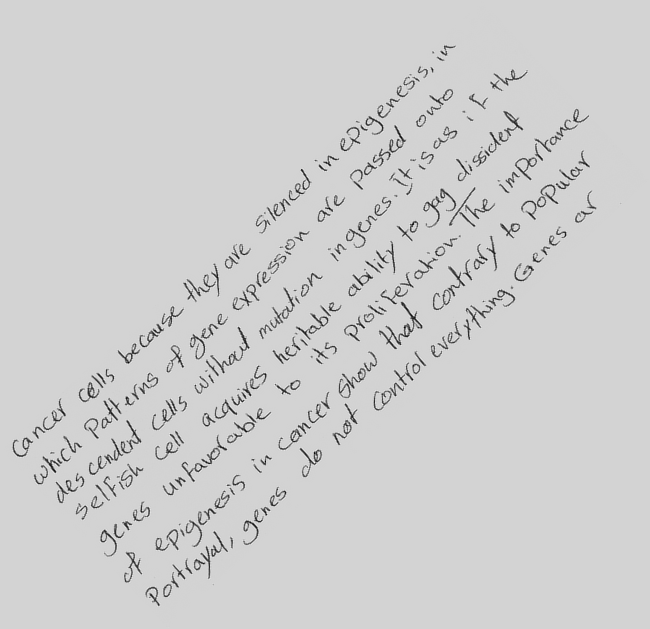 cancer cells because they are silenced in epigenesis, in
which Patterns of gene expression are passed onto
descendent cells without mutation in genes. It is as if the
selfish cell acquires heritable ability to gag dissident
genes unfavorable to its proliferation. The importance
of epigenesis in cancer show that contrary to popular
Portrayal, genes do not control everything. Genes ar